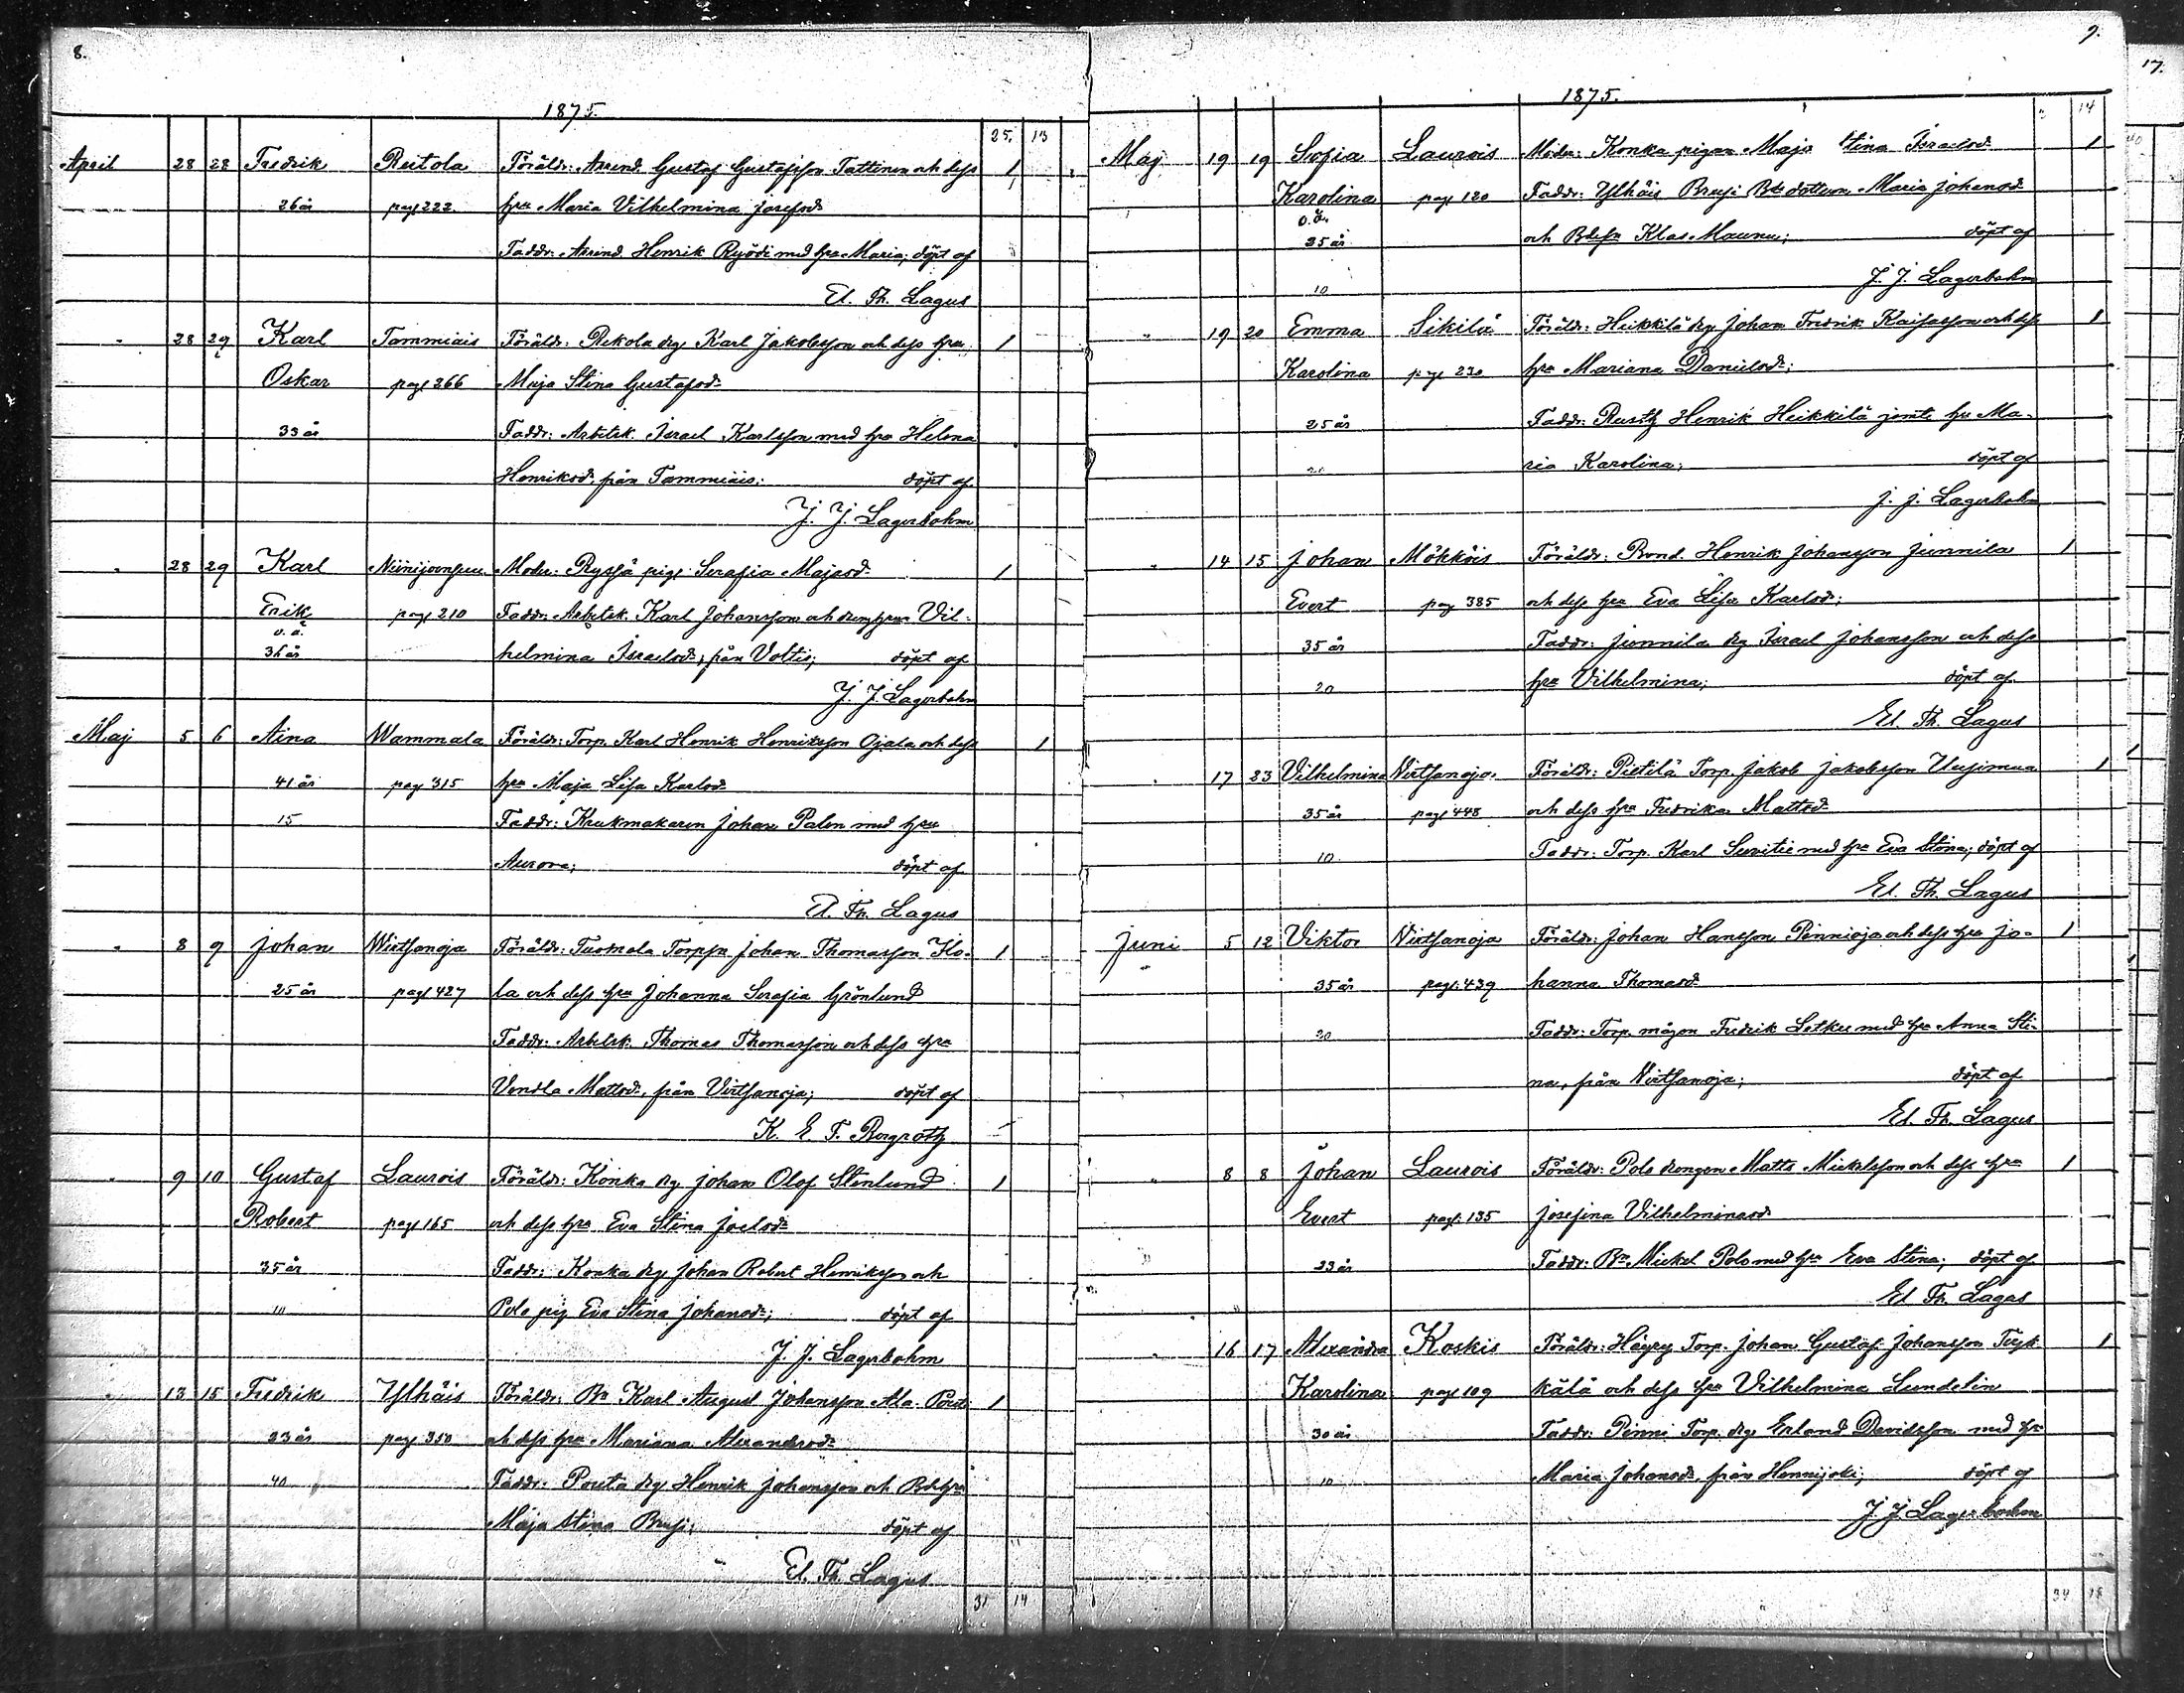 8.
1875.
25. 13
April 28 28 Fredrik Reitola Föräldr: Arrend. Gustaf Gustafsson Tattinen och dess 1
26 år pag 222. hru Maria Vilhelmina Josefsd.
Faddr: Arrend. Henrik Ryödi med hru Maria; döpt af
El. Th. Lagus
" 28 29 Karl Tammiais Föräldr: Rekola drg Karl Jakobsson och dess hru 1
Oskar pag 266 Maja Stina Gustafsd.
33 år Faddr: Arbetsk. Israel Karlsson med hru Helena
Henriksd. från Tammiais; döpt af
J. J. Lagerbohm
" 28 29 Karl Niinijoensuu Moder: Ryssä piga Serafia Majasd. 1
Erik pag 210 Faddr: Arbetsk. Karl Johansson och drenghrun Vil-
o.ä.
36 år helmina Israelsd., från Voltis; döpt af
J. J. Lagerbohm
Maj 5 6 Aina Wammala Föräldr: Torp. Karl Henrik Henriksson Ojala och dess 1
41 år pag 315 hru Maja Lisa Karlsd.
15 Faddr: Krukmakaren Johan Palen med hru
Aurora; döpt af
El. Th. Lagus
" 8 9 Johan Wirtsanoja Föräldr: Tuomola Torpsn Johan Thomasson Ko- 1
25 år pag 427 la och dess hru Johanna Serafia Grönlund
Faddr: Arbetsk. Thomas Thomasson och dess hru
Vendla Mattsd., från Virtsanoja; döpt af
K. E. F. Bergroth
" 9 10 Gustaf Laurois Föräldr: Konka drg. Johan Olof Stenlund 1
Robert pag 165 och dess hru Eva Stina Joelsd.
35 år Faddr: Konka drg Johan Robert Henriksson och
10 Polo pig. Eva Stina Johansd.; döpt af
J. J. Lagerbohm
" 13 15 Fredrik Ylhäis Föräldr: Bn Karl August Johansson Ala-Pouta 1
23 år pag 350 och dess hru Mariana Alexandersd.
40 Faddr: Pouta drg Henrik Johansson och Bdehru
Maja Stina Prusi; döpt af
El. Th. Lagus
31 14
9.
1875.
14
Maj 19 19 Sofia Laurois Moder: Konka pigan Maja Stina Israelsd. 1
Karolina pag 120 Faddr: Ylhäis Brusi Bde dottern Maria Johansd.
o.ä.
35 år och Bdesn Klas Maunu; döpt af
10 J. J. Lagerbohm
" 19 20 Emma Sikilä Föräldr: Heikkilä drg Johan Fredrik Kaisasson och dess 1
Karolina pag 230 hru Mariana Danielsd.;
25 år Faddr: Rusth Henrik Heikkilä jemte hru Ma-
20 ria Karolina; döpt af
J. J. Lagerbohm
" 14 15 Johan Mökköis Föräldr: Bond. Henrik Johansson Junnila 1
Evert pag 385 och dess hru Eva Lisa Karlsd.;
35 år Faddr: Junnila drg Israel Johansson och dess
20 hru Vilhelmina; döpt af
El. Th. Lagus
" 17 23 Vilhelmina Virtsanoja Föräldr: Pietilä Torp. Jakob Jakobsson Uusimaa 1
35 år pag 448 och dess hru Fredrika Mattsd.
10 Faddr: Torp. Karl Suvitie med hru Eva Stina; döpt af
El. Th. Lagus
Juni 5 12 Viktor Virtsanoja Föräldr: Johan Hansson Pennioja och dess hru Jo- 1
35 år pag. 439 hanna Thomasd.
20 Faddr: Torp. mågen Fredrik Letku med hru Anna Sti-
na, från Virtsanoja; döpt af
El. Th. Lagus
" 8 8 Johan Laurois Föräldr: Polo drengen Matts Mickelsson och dess hru 1
Evert pag. 135 Josefina Vilhelminasd.
23 år Faddr: Bn Mickel Polo med hru Eva Stina; döpt af
El Th. Lagus
" 16 17 Alexandra Koskis Föräldr: Höyry Torp. Johan Gustaf Johansson Tyk- 1
Karolina pag 109 kälä och dess hru Vilhelmina Sundelin
30 år Faddr: Penni Torp. drg Erland Davidsson med hru
10 Maria Johansd. från Hennijoki; döpt af
J. J. Lagerbohm
34 18
17.